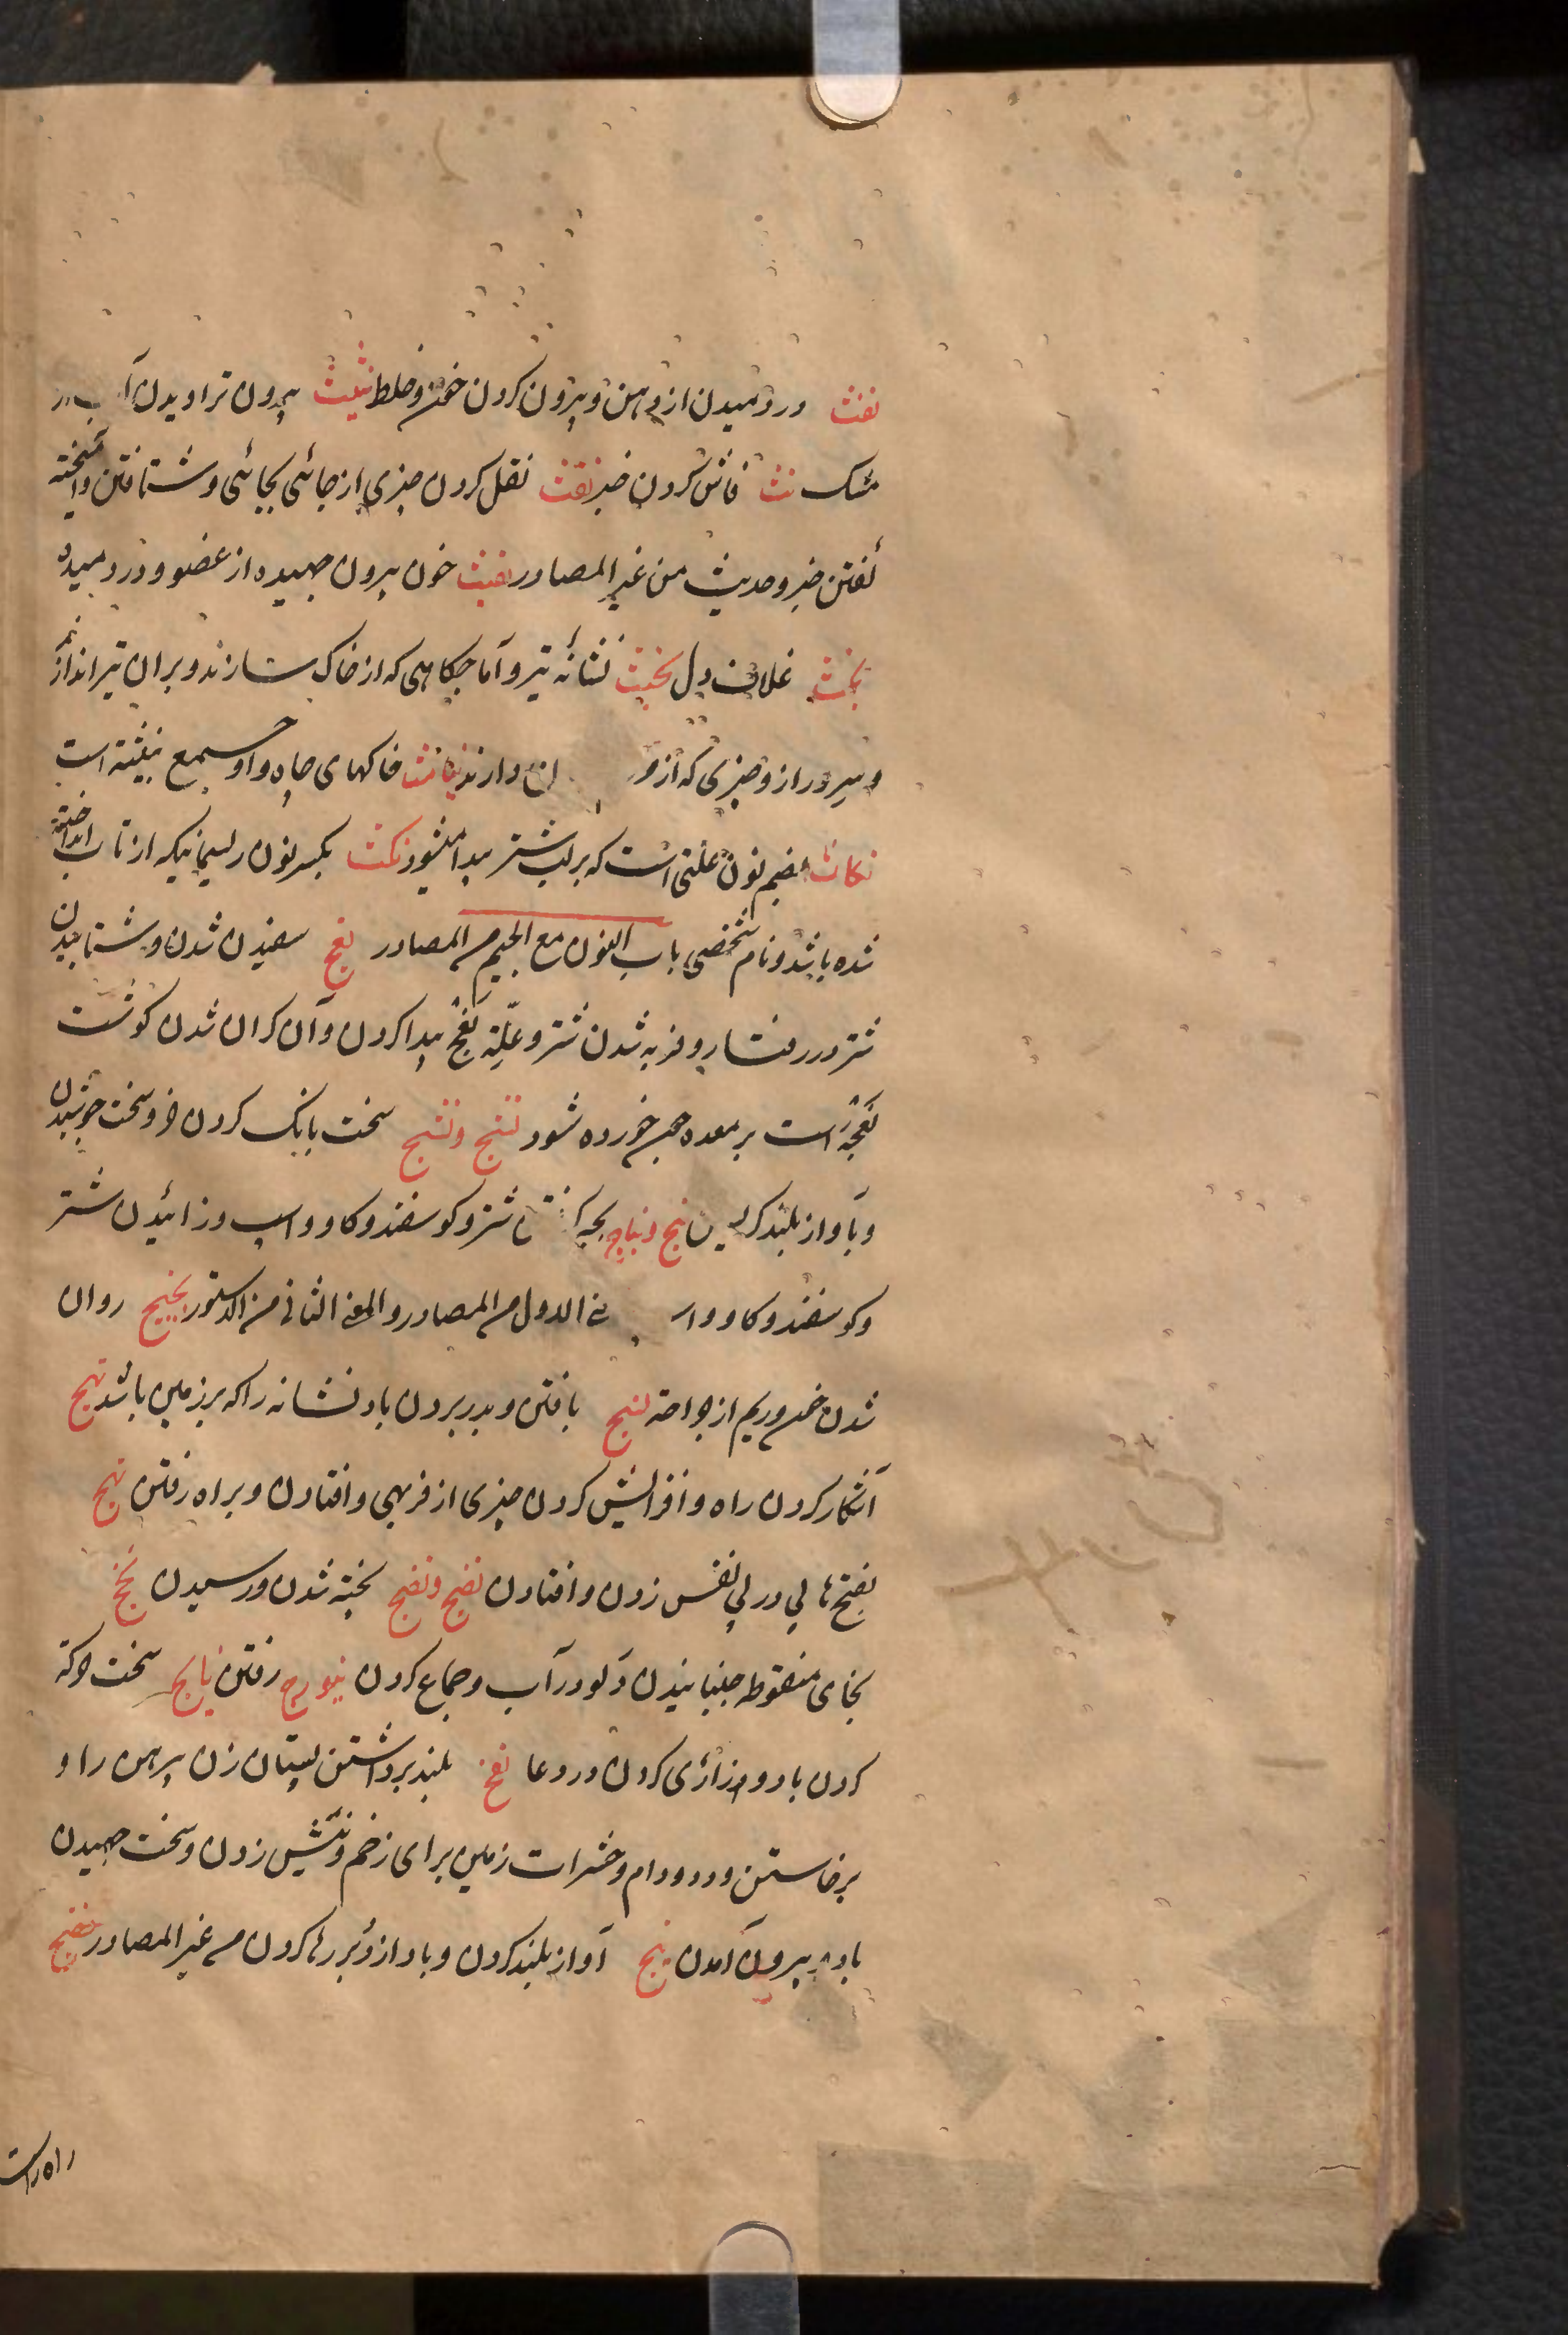 نفث در دمیدن از دهن و بیرون کردن خون و خلط نثیث بیرون تراویدن آب از
مشک نث فاش کردن خبر نقث نقل کردن چیزی از جائی بجائی و شتافتن و آمیخته
گفتن خبر و حدیث من غیر المصادر نفیث خون بیرون جهیده از عضو و در دمیده
نجث غلاف دل نجیث نشانه تیر و آماجگاهی که از خاک سازند و بران تیر اندازند
و سرور از و چیزی که از و دارند نبائث خاکهای چاه و او جمع نبیثه است
نکاث بضم نون علتی است که بر لب شتر پیدا میشود نکث بکسر نون ریسمانیکه از تاب انداخته
شده باشد و نام شخصی باب النون مع الجیم من المصادر نعج سفیدن شدن و شتابیدن
شتر در رفتار و فربه شدن شتر و علة نعج پیدا کردن و آن گران شدن گوشت
نعجه است بر معده چون خورده شود نئیج و نشیج سخت بانگ کردن خر و سخت جوشیدن
و بآواز بلند نتج و نتاج بچه شتر و کوسفند و کاو و اسب و زائیدن شتر
و کوسفند و کاو و الاول من المصادر و المعنی الثانی من الدستور نجیج روان
شدن خون و ریم از جراحة نسج بافتن و بدر بردن باد نشانه را که بر زمین باشد نهج
آشکار کردن راه و افزایش کردن چیزی از فربهی و افتادن و براه رفتن نهج
بفتح ها پی در پی نفس زدن و افتادن نضج و نضج پخته شدن و رسیدن نخج
بخای منقوطه جنبانیدن دلو در آب و جماع کردن نیورج رفتن نایج سخت حرکة
کردن باد و زاری کردن در دعا نفج بلند برداشتن پستان زن پیرهن را و
برخاستن دد و دام و حشرات زمین برای زخم و نیش زدن و سخت جهیدن
باد بیرون آمدن نبج آواز بلند کردن و باد از دبر رها کردن من غیر المصادر نضیج
راه راست